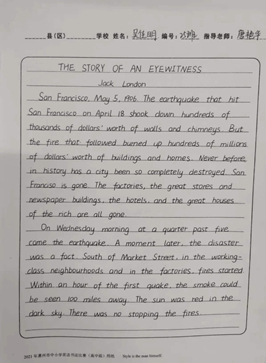 县(区) 学校 姓名: 编号: 指导老师:
THE STORY OF AN EYEWITNESS
Jack London
San Francisco, May 5, 1906. The earthquake that hit
San Francisco on April 18 shook down hundreds of
thousands of dollars' worth of walls and chimneys. But
the fire that followed burned up hundreds of millions
of dollars' worth of buildings and homes. Never before
in history has a city been so completely destroyed. San
Francisco is gone. The factories, the great stores and
newspaper buildings, the hotels, and the great houses
of the rich are all gone.
On Wednesday morning at a quarter past five
came the earthquake. A moment later, the disaster
was a fact. South of Market Street, in the working-
class neighbourhoods and in the factories, fires started
Within an hour of the first quake, the smoke could
be seen 100 miles away. The sun was red in the
dark sky. There was no stopping the fires.